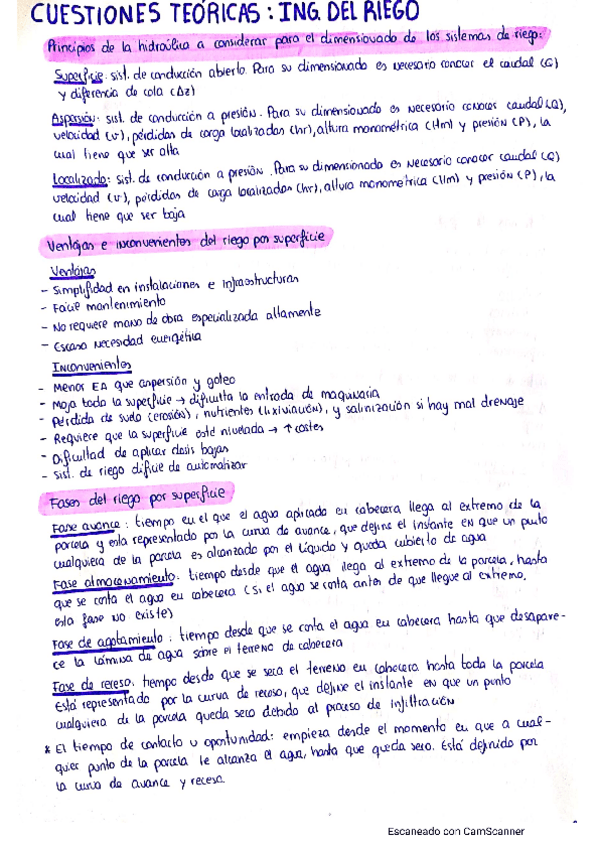 CUESTIONES TEÓRICAS: ING. DEL RIEGO
Principios de la hidraúlica a considerar para el dimensionado de los sistemas de riego:
Superficie: sist. de conducción abierto. Para su dimensionado es necesario conocer el caudal (Q)
y diferencia de cota (Δz)
Aspersión: sist. de conducción a presión. Para su dimensionado es necesario conocer caudal (Q),
velocidad (v), pérdidas de carga localizadas (hr), altura manométrica (Hm) y presión (P), la
cual tiene que ser alta
Localizado: sist. de conducción a presión. Para su dimensionado es necesario conocer caudal (Q)
velocidad (v), pérdidas de carga localizadas (hr), altura manométrica (Hm) y presión (P), la
cual tiene que ser baja
Ventajas e inconvenientes del riego por superficie
Ventajas
- Simplifidad en instalaciones e infraestructuras
- Fácil mantenimiento
- No requiere mano de obra especializada altamente
- Escasa necesidad energética
Inconvenientes
- Menor EA que aspersión y goteo
- Moja toda la superficie → dificulta la entrada de maquinaria
- Pérdida de suelo (erosión), nutrientes (lixiviación), y salinización si hay mal drenaje
- Requiere que la superficie esté nivelada → ↑ costes
- Dificultad de aplicar dosis bajas
- Sist. de riego difícil de automatizar
Fases del riego por superficie
Fase avance: tiempo en el que el agua aplicada en cabecera llega al extremo de la
parcela y esta representado por la curva de avance, que define el instante en que un punto
cualquiera de la parcela es alcanzado por el líquido y queda cubierto de agua
Fase almacenamiento: tiempo desde que el agua llega al extremo de la parcela, hasta
que se corta el agua en cabecera (Si el agua se corta antes de que llegue al extremo,
esta fase no existe)
Fase de agotamiento: tiempo desde que se corta el agua en cabecera hasta que desapare-
ce la lámina de agua sobre el terreno de cabecera
Fase de receso: tiempo desde que se seca el terreno en cabecera hasta toda la parcela
Está representado por la curva de receso, que define el instante en que un punto
cualquiera de la parcela queda seco debido al proceso de infiltración
* El tiempo de contacto u oportunidad: empieza desde el momento en que a cual-
quier punto de la parcela le alcanza el agua, hasta que queda seco. Está definido por
la curva de avance y receso
Escaneado con CamScanner